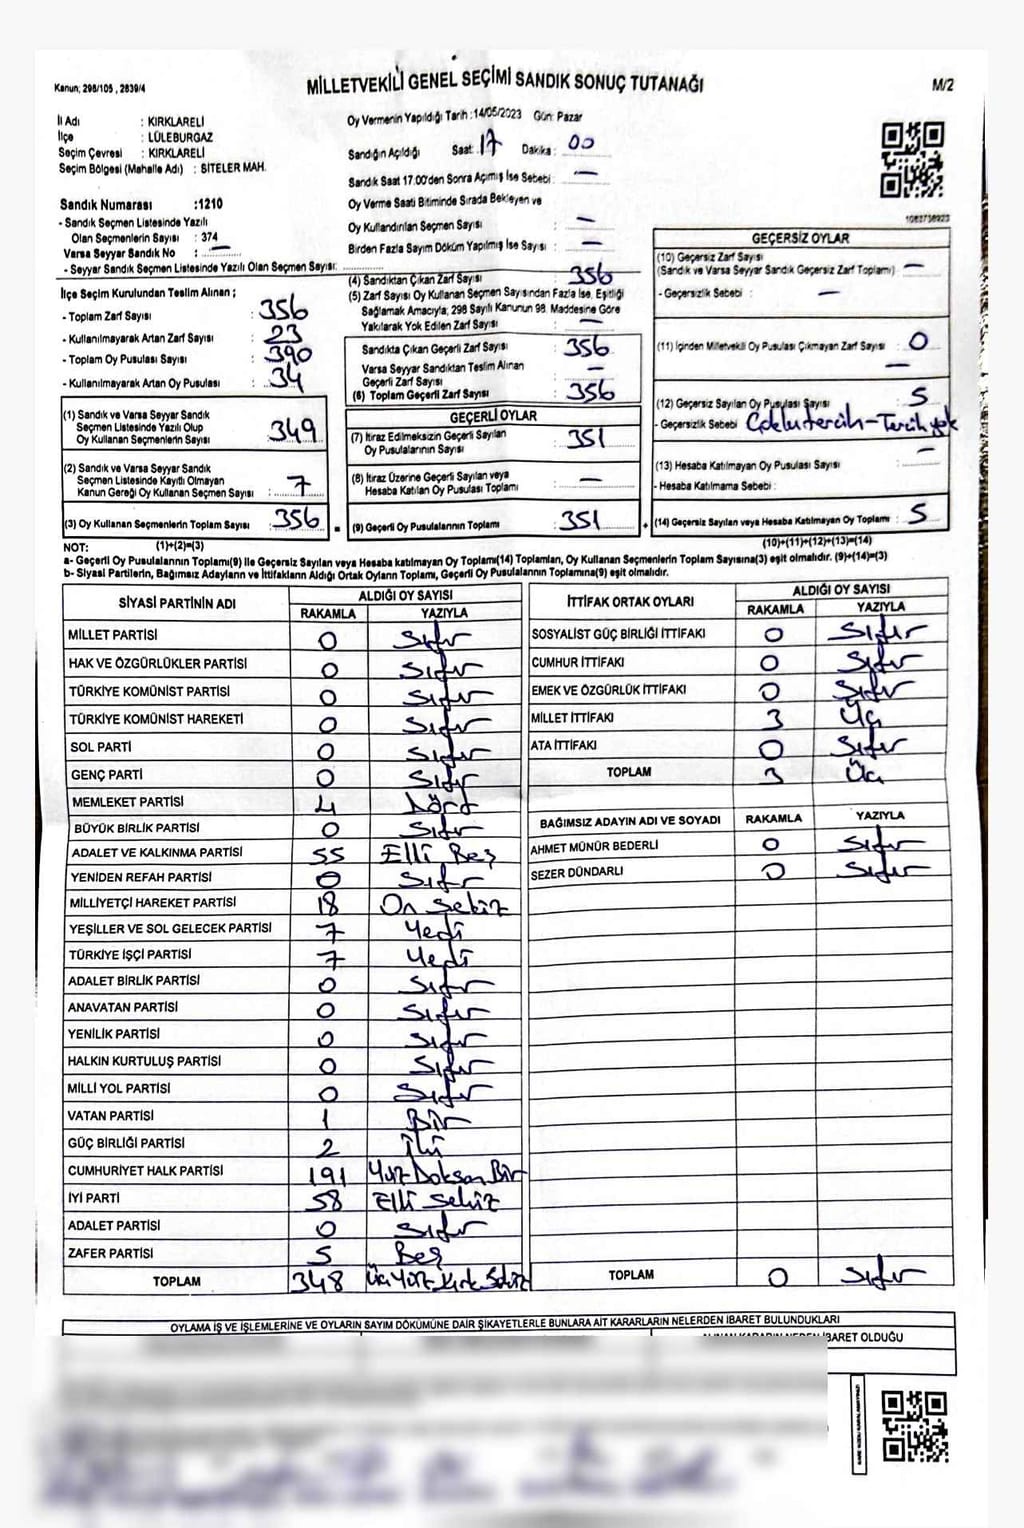 Kanun; 298/105 , 2839/4
MİLLETVEKİLİ GENEL SEÇİMİ SANDIK SONUÇ TUTANAĞI
M/2
İl Adı : KIRKLARELİ
İlçe : LÜLEBURGAZ
Seçim Çevresi : KIRKLARELİ
Seçim Bölgesi (Mahalle Adı) : SİTELER MAH.
Sandık Numarası :1210
- Sandık Seçmen Listesinde Yazılı
Olan Seçmenlerin Sayısı : 374
Varsa Seyyar Sandık No : —
- Seyyar Sandık Seçmen Listesinde Yazılı Olan Seçmen Sayısı:
Oy Vermenin Yapıldığı Tarih :14/05/2023 Gün: Pazar
Sandığın Açıldığı Saat: 17 Dakika : 00
Sandık Saat 17.00'den Sonra Açımış İse Sebebi : —
Oy Verme Saati Bitiminde Sırada Bekleyen ve
Oy Kullandırılan Seçmen Sayısı —
Birden Fazla Sayım Döküm Yapılmış İse Sayısı : —
1083738923
İlçe Seçim Kurulundan Teslim Alınan ;
- Toplam Zarf Sayısı : 356
- Kullanılmayarak Artan Zarf Sayısı : 23
- Toplam Oy Pusulası Sayısı : 390
- Kullanılmayarak Artan Oy Pusulası : 34
(1) Sandık ve Varsa Seyyar Sandık
Seçmen Listesinde Yazılı Olup
Oy Kullanan Seçmenlerin Sayısı : 349
(2) Sandık ve Varsa Seyyar Sandık
Seçmen Listesinde Kayıtlı Olmayan
Kanun Gereği Oy Kullanan Seçmen Sayısı : 7
(3) Oy Kullanan Seçmenlerin Toplam Sayısı : 356
(4) Sandıktan Çıkan Zarf Sayısı : 356
(5) Zarf Sayısı Oy Kullanan Seçmen Sayısından Fazla İse, Eşitliği
Sağlamak Amacıyla; 298 Sayılı Kanunun 98. Maddesine Göre
Yakılarak Yok Edilen Zarf Sayısı : —
Sandıkta Çıkan Geçerli Zarf Sayısı : 356
Varsa Seyyar Sandıktan Teslim Alınan
Geçerli Zarf Sayısı : —
(6) Toplam Geçerli Zarf Sayısı : 356
GEÇERLİ OYLAR
(7) İtiraz Edilmeksizin Geçerli Sayılan
Oy Pusulalarının Sayısı : 351
(8) İtiraz Üzerine Geçerli Sayılan veya
Hesaba Katılan Oy Pusulası Toplamı : —
= (9) Geçerli Oy Pusulalarının Toplamı : 351
GEÇERSİZ OYLAR
(10) Geçersiz Zarf Sayısı
(Sandık ve Varsa Seyyar Sandık Geçersiz Zarf Toplamı) : —
- Geçersizlik Sebebi : —
(11) İçinden Milletvekili Oy Pusulası Çıkmayan Zarf Sayısı : 0
—
(12) Geçersiz Sayılan Oy Pusulası Sayısı : 5
- Geçersizlik Sebebi : Çoklu tercih - Tercih yok
(13) Hesaba Katılmayan Oy Pusulası Sayısı : —
- Hesaba Katılmama Sebebi :
+ (14) Geçersiz Sayılan veya Hesaba Katılmayan Oy Toplamı : 5
NOT: (1)+(2)=(3) (10)+(11)+(12)+(13)=(14)
a- Geçerli Oy Pusulalarının Toplamı(9) İle Geçersiz Sayılan veya Hesaba katılmayan Oy Toplamı(14) Toplamları, Oy Kullanan Seçmenlerin Toplam Sayısına(3) eşit olmalıdır. (9)+(14)=(3)
b- Siyasi Partilerin, Bağımsız Adayların ve İttifakların Aldığı Ortak Oyların Toplamı, Geçerli Oy Pusulalarının Toplamına(9) eşit olmalıdır.
SİYASİ PARTİNİN ADI ALDIĞI OY SAYISI
RAKAMLA YAZIYLA
MİLLET PARTİSİ 0 Sıfır
HAK VE ÖZGÜRLÜKLER PARTİSİ 0 Sıfır
TÜRKİYE KOMÜNİST PARTİSİ 0 Sıfır
TÜRKİYE KOMÜNİST HAREKETİ 0 Sıfır
SOL PARTİ 0 Sıfır
GENÇ PARTİ 0 Sıfır
MEMLEKET PARTİSİ 4 Dört
BÜYÜK BİRLİK PARTİSİ 0 Sıfır
ADALET VE KALKINMA PARTİSİ 55 Elli Beş
YENİDEN REFAH PARTİSİ 0 Sıfır
MİLLİYETÇİ HAREKET PARTİSİ 18 On Sekiz
YEŞİLLER VE SOL GELECEK PARTİSİ 7 Yedi
TÜRKİYE İŞÇİ PARTİSİ 7 Yedi
ADALET BİRLİK PARTİSİ 0 Sıfır
ANAVATAN PARTİSİ 0 Sıfır
YENİLİK PARTİSİ 0 Sıfır
HALKIN KURTULUŞ PARTİSİ 0 Sıfır
MİLLİ YOL PARTİSİ 0 Sıfır
VATAN PARTİSİ 1 Bir
GÜÇ BİRLİĞİ PARTİSİ 2 İki
CUMHURİYET HALK PARTİSİ 191 Yüz Doksan Bir
İYİ PARTİ 58 Elli Sekiz
ADALET PARTİSİ 0 Sıfır
ZAFER PARTİSİ 5 Beş
TOPLAM 348 Üç Yüz Kırk Sekiz
İTTİFAK ORTAK OYLARI ALDIĞI OY SAYISI
RAKAMLA YAZIYLA
SOSYALİST GÜÇ BİRLİĞİ İTTİFAKI 0 Sıfır
CUMHUR İTTİFAKI 0 Sıfır
EMEK VE ÖZGÜRLÜK İTTİFAKI 0 Sıfır
MİLLET İTTİFAKI 3 Üç
ATA İTTİFAKI 0 Sıfır
TOPLAM 3 Üç
BAĞIMSIZ ADAYIN ADI VE SOYADI RAKAMLA YAZIYLA
AHMET MÜNÜR BEDERLİ 0 Sıfır
SEZER DÜNDARLI 0 Sıfır
TOPLAM 0 Sıfır
OYLAMA İŞ VE İŞLEMLERİNE VE OYLARIN SAYIM DÖKÜMÜNE DAİR ŞİKAYETLERLE BUNLARA AİT KARARLARIN NELERDEN İBARET BULUNDUKLARI
İBARET OLDUĞU